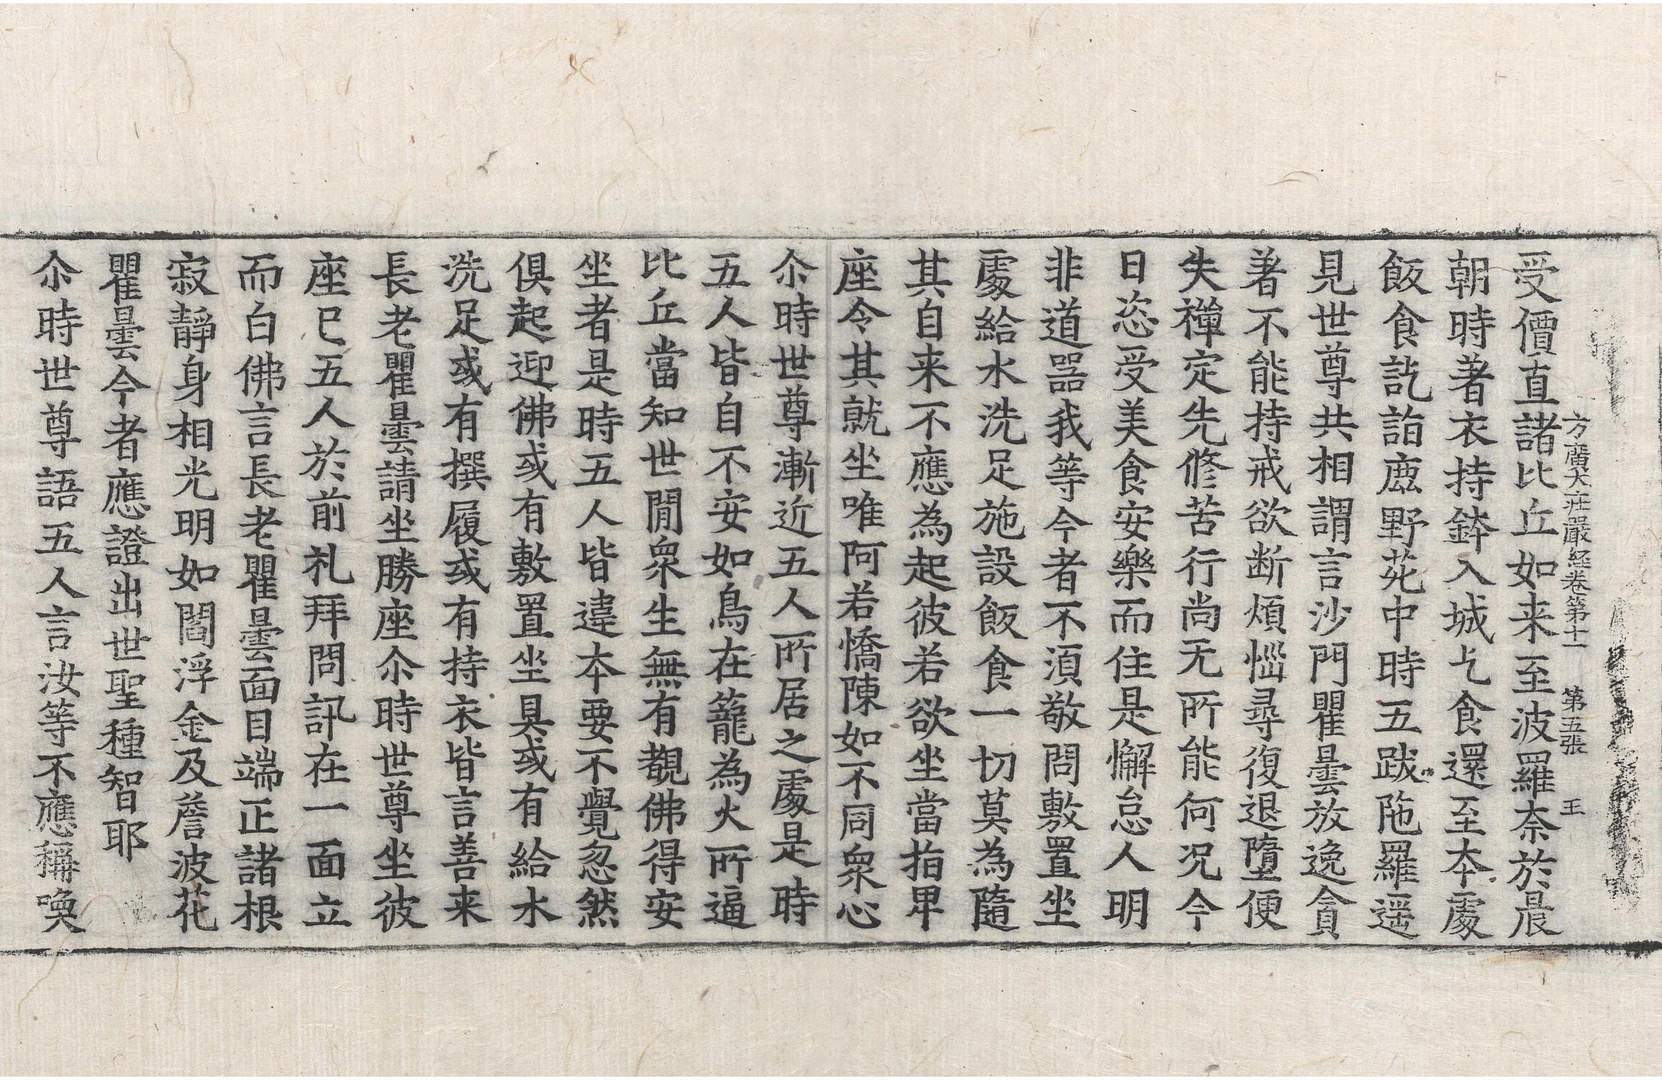 方廣大莊嚴経卷第十一 第五張 王
受價直諸比丘如来至波羅奈於晨
朝時著衣持鉢入城乞食還至本處
飯食訖詣鹿野苑中時五跋陁羅遥
見世尊共相謂言沙門瞿曇放逸貪
著不能持戒欲断煩惱尋復退墮便
失禪定先修苦行尚无所能何况今
日恣受美食安樂而住是懈怠人明
非道器我等今者不須敬問敷置坐
處給水洗足施設飯食一切莫為隨
其自来不應為起彼若欲坐當指卑
座令其就坐唯阿若憍陳如不同衆心
尒時世尊漸近五人所居之處是時
五人皆自不安如鳥在籠為火所逼
比丘當知世間衆生無有覩佛得安
坐者是時五人皆違本要不覺忽然
俱起迎佛或有敷置坐具或有給水
洗足或有撰履或有持衣皆言善来
長老瞿曇請坐勝座尒時世尊坐彼
座已五人於前礼拜問訊在一面立
而白佛言長老瞿曇面目端正諸根
寂静身相光明如閻浮金及詹波花
瞿曇今者應證出世聖種智耶
尒時世尊語五人言汝等不應稱喚